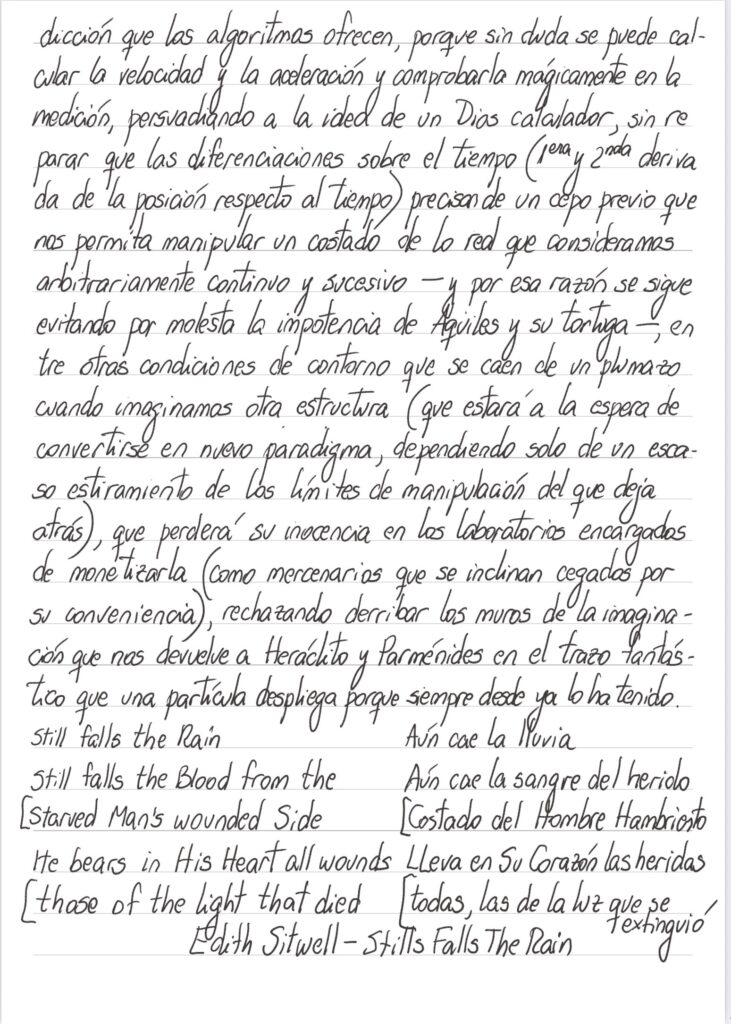 dicción que los algoritmos ofrecen, porque sin duda se puede cal-
cular la velocidad y la aceleración y comprobarla mágicamente en la
medición, persuadiendo a la idea de un Dios calculador, sin re
parar que las diferenciaciones sobre el tiempo (1era y 2nda deriva
da de la posición respecto al tiempo) precisan de un cepo previo que
nos permita manipular un costado de lo real que consideramos
arbitrariamente continuo y sucesivo – y por esa razón se sigue
evitando por molesta la impotencia de Aquiles y su tortuga –, en
tre otras condiciones de contorno que se caen de un plumazo
cuando imaginamos otra estructura (que estará a la espera de
convertirse en nuevo paradigma, dependiendo solo de un esca-
so estiramiento de los límites de manipulación del que deja
atrás), que perderá su inocencia en los laboratorios encargados
de monetizarla (como mercenarios que se inclinan cegados por
su conveniencia), rechazando derribar los muros de la imagina-
ción que nos devuelve a Heráclito y Parménides en el trazo fantás-
tico que una partícula despliega porque siempre desde ya lo ha tenido.
Still falls the Rain Aún cae la lluvia
Still falls the Blood from the Aún cae la sangre del herido
[Starved Man's wounded Side [Costado del Hombre Hambriento
He bears in His Heart all wounds LLeva en Su Corazón las heridas
[those of the light that died [todas, las de la luz que se
[extinguió
Edith Sitwell – Stills Falls The Rain